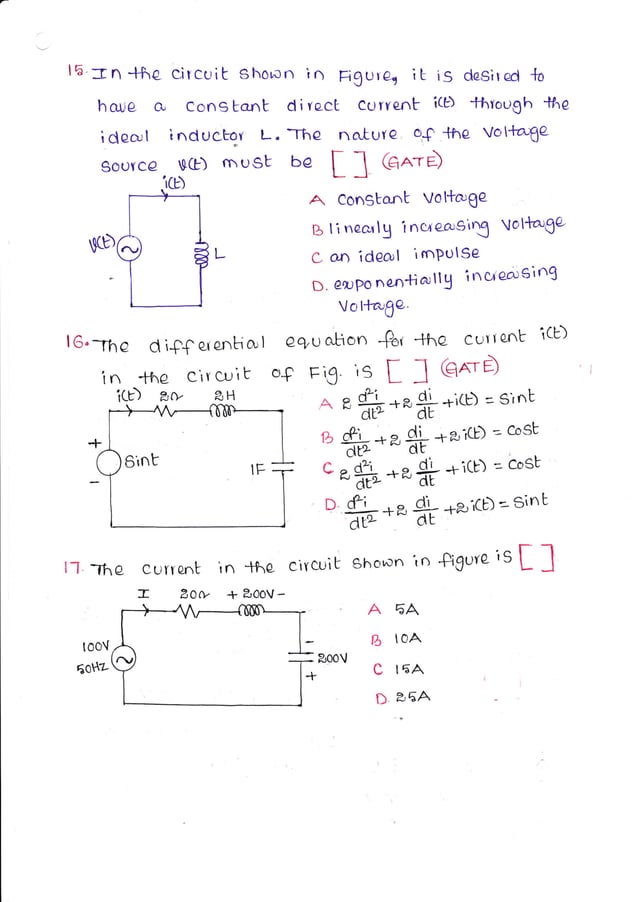 15. In the circuit shown in Figure, it is desired to
have a constant direct current i(t) through the
ideal inductor L. The nature of the voltage
source v(t) must be [ ] (GATE)
i(t)
v(t)
L
A constant voltage
B linearly increasing voltage
C an ideal impulse
D. exponentially increasing
Voltage.
16. The differential equation for the current i(t)
in the circuit of Fig. is [ ] (GATE)
i(t) 2Ω 2H
+
Sint
-
1F
A 2 d²i/dt² + 2 di/dt + i(t) = Sint
B d²i/dt² + 2 di/dt + 2i(t) = Cost
C 2 d²i/dt² + 2 di/dt + i(t) = Cost
D. d²i/dt² + 2 di/dt + 2i(t) = Sint
17. The current in the circuit shown in figure is [ ]
I 20Ω + 200V -
100V
50HZ
-
200V
+
A 5A
B 10A
C 15A
D. 25A